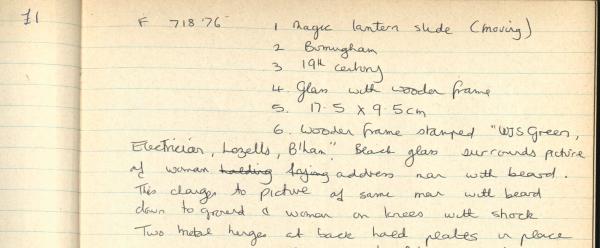 £1
F 718'76 1 Magic lantern slide (moving)
2 Birmingham
3 19th century
4. Glass with wooden frame
5. 17.5 x 9.5cm
6. Wooden frame stamped "WJS Green,
Electrician, Lozells, B'ham". Black glass surrounds picture
of woman address man with beard.
This changes to picture of same man with beard
down to ground & woman on knees with shock
Two metal hinges at back hold plates in place